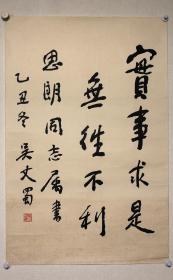 實事求是
無往不利
思明同志属書
乙丑冬吴丈蜀